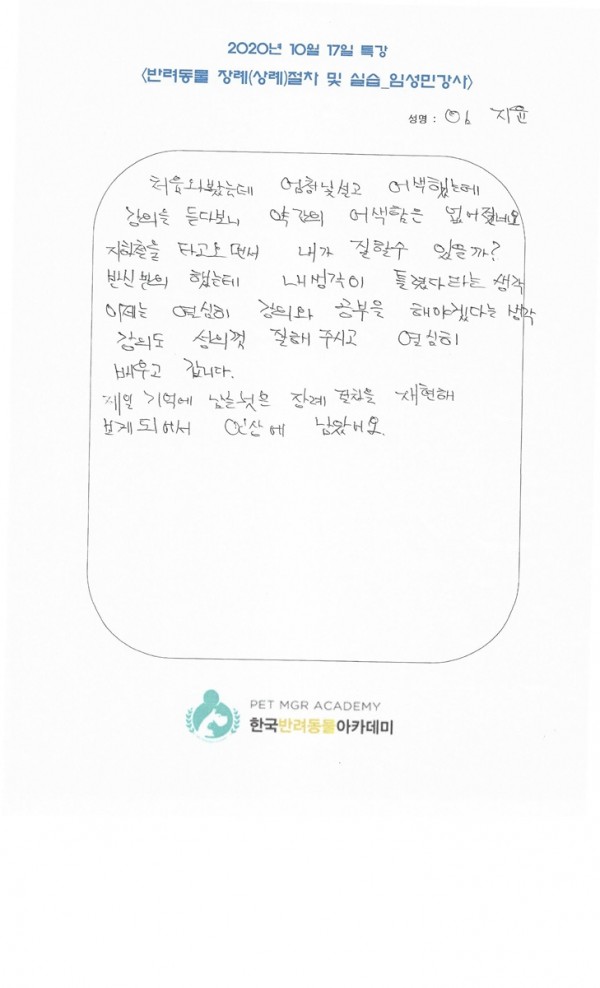 2020년 10월 17일 특강
<반려동물 장례(상례)절차 및 실습_임성민강사>
성명 : 임 지윤
처음와봤는데 엄청낯설고 어색했는데
강의를 듣다보니 약간의 어색함은 없어졌네요
지하철을 타고오면서 내가 잘할수 있을까?
반신반의 했는데 내생각이 틀렸다라는 생각
이제는 열심히 강의와 공부를 해야겠다는 생각
강의도 성의껏 잘해 주시고 열심히
배우고 갑니다.
제일 기억에 남는것은 장례 절차를 재현해
보게되어서 인상에 남았어요.
PET MGR ACADEMY
한국반려동물아카데미